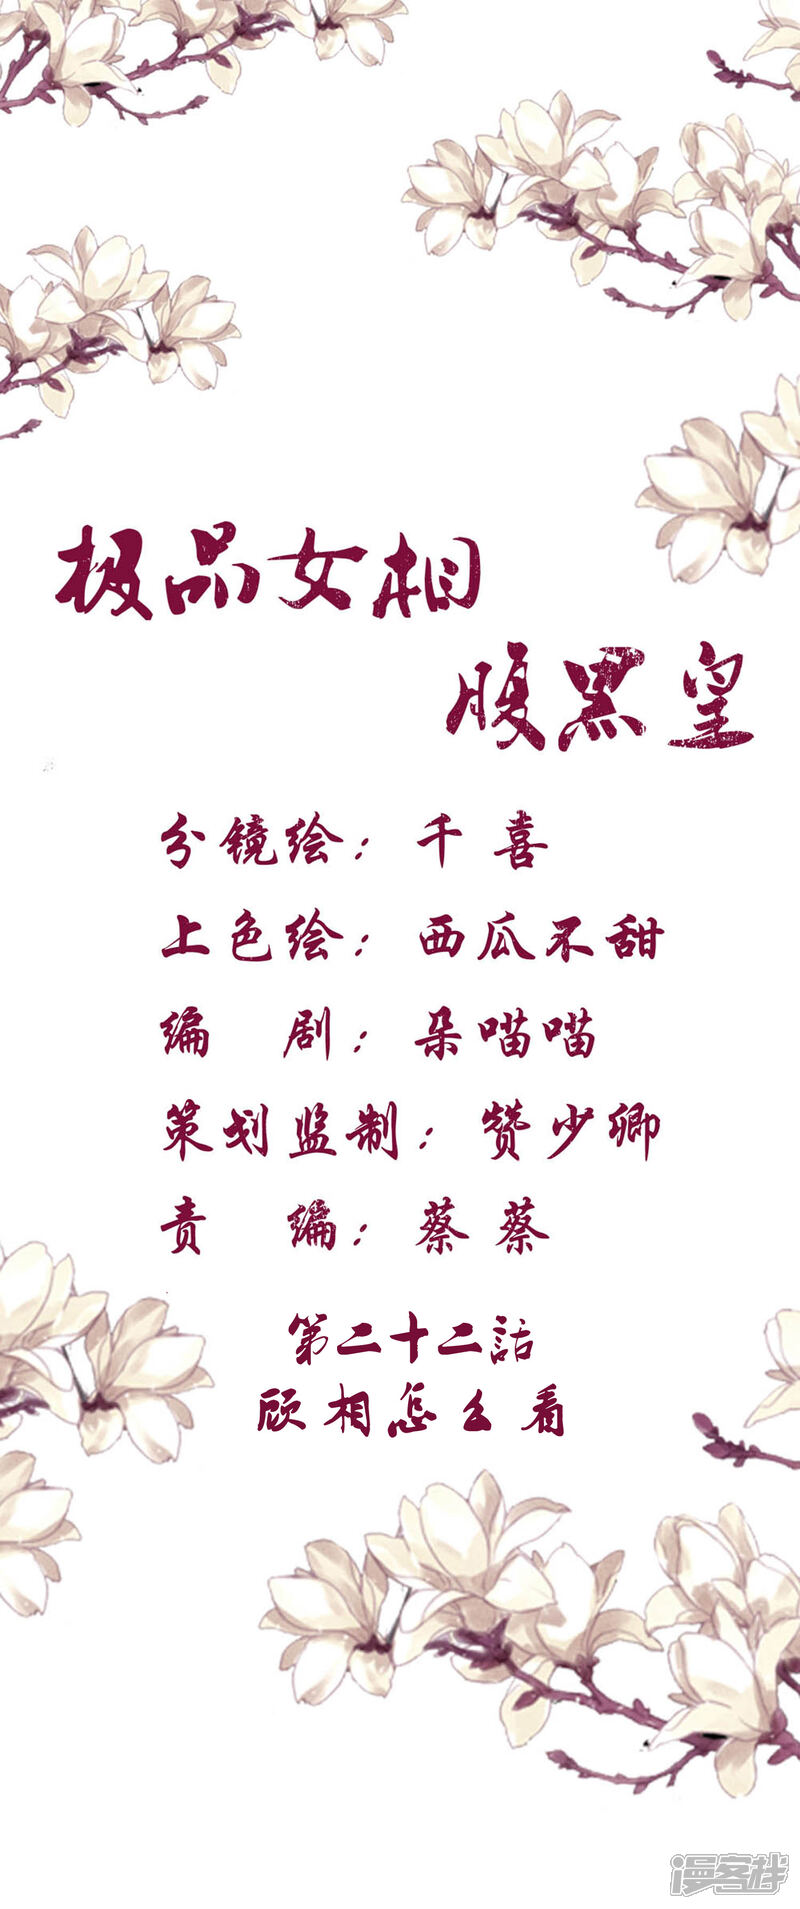 极品女相
腹黑皇
分镜绘：千喜
上色绘：西瓜不甜
编 剧：朵喵喵
策划监制：赞少卿
责 编：蔡蔡
第二十二話
顾相怎么看
漫客栈